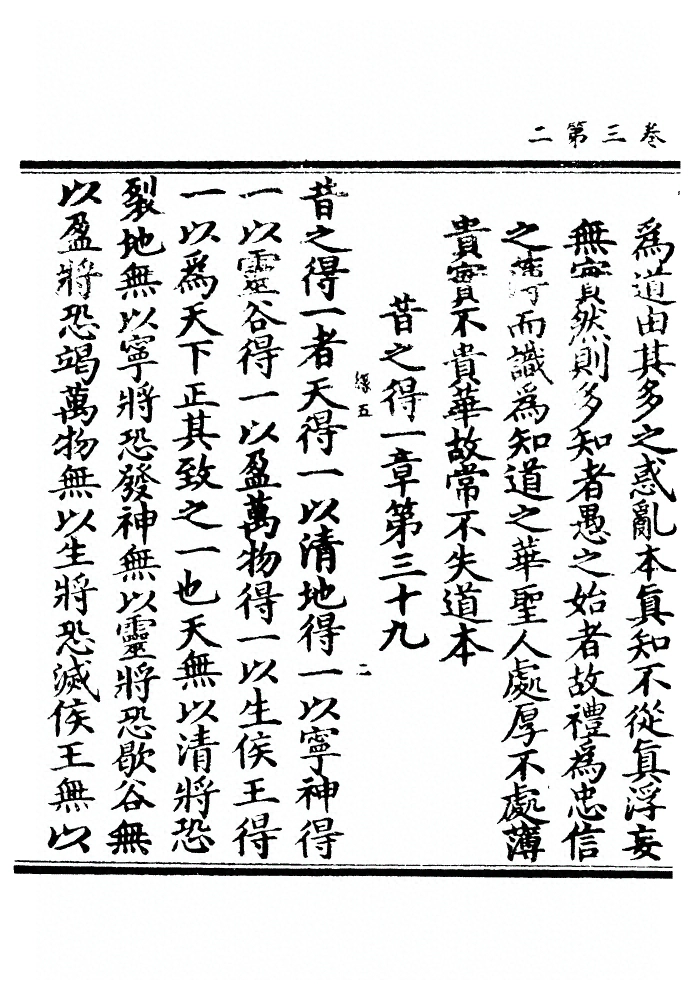 卷三第二
為道由其多之惑亂本真知不從真浮妄
無實然則多知者愚之始者故禮為忠信
之薄而識為知道之華聖人處厚不處薄
貴實不貴華故常不失道本
昔之得一章第三十九
五
二
昔之得一者天得一以清地得一以寧神得
一以靈谷得一以盈萬物得一以生侯王得
一以為天下正其致之一也天無以清將恐
裂地無以寧將恐發神無以靈將恐歇谷無
以盈將恐竭萬物無以生將恐滅侯王無以